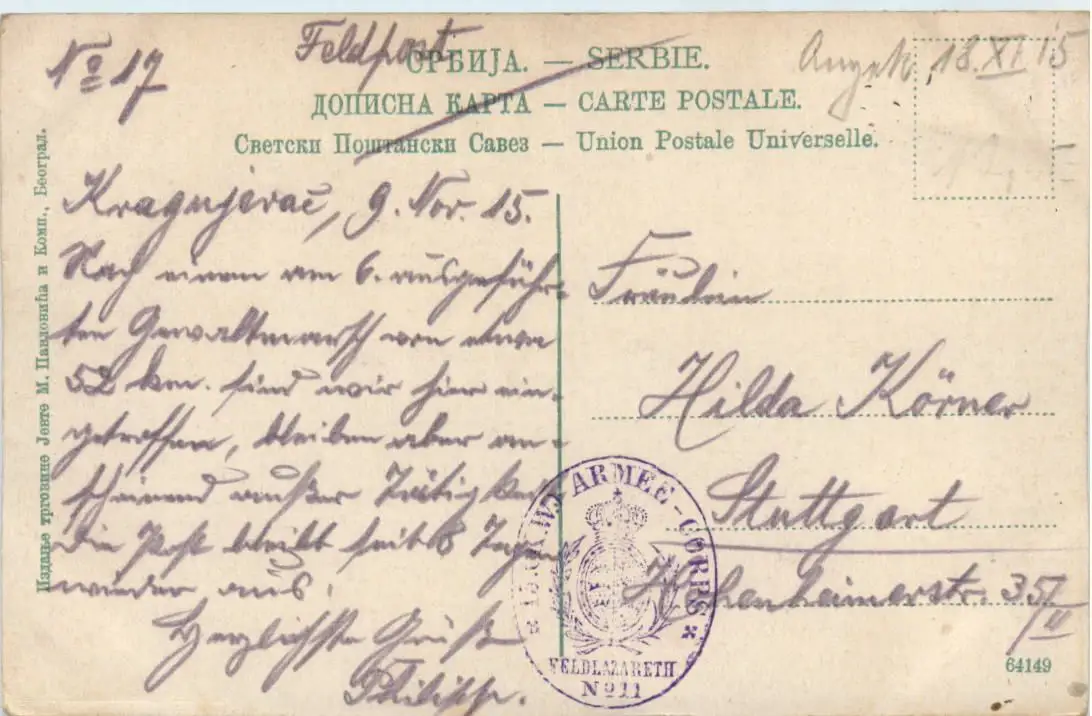 Nº 17
Feldpost
Angek. 18.XI 15
СРБИЈА. — SERBIE.
ДОПИСНА КАРТА — CARTE POSTALE.
Светски Поштански Савез — Union Postale Universelle.
Издање трговине Јевте М. Павловића и Комп., Београд.
Kragujevač, 9. Nov. 15.
Nach einem am 6. ausgeführ-
ten Gewaltmarsch von etwa
52 km. sind wir hier ein-
getroffen, bleiben aber an-
scheinend außer Tätigkeit.
Die Post bleibt seit 8 Tagen
wieder aus.
Herzlichste Grüße
Philipp.
Fräulein
Hilda Körner
Stuttgart
Hohenheimerstr. 35/II
ARMEE-CORPS
FELDLAZARETH
Nº 11
64149